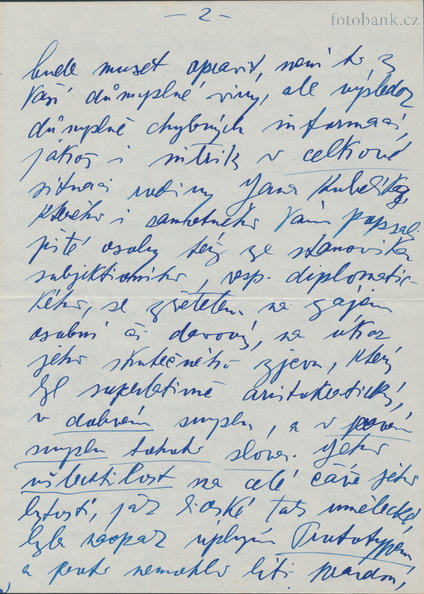 fotobank.cz
- 2 -
bude muset opravit, není to z
Vaší důmyslné viny, ale výsledek
důmyslně chybných informací,
jakož i intrik v celkové
situaci rodiny Jana Kubelíka,
kterého i samotného Vám popsali
jisté osoby též ze stanoviska
subjektivního, resp. diplomatic-
kého, se zřetelem na zájem
osobní či davový, na úkor
jeho skutečného zjevu, který
byl superlativně aristokratický,
v dobrém smyslu, a v pravém
smyslu tohoto slova. Jeho
ušlechtilost na celé čáře jeho
bytosti, jak lidské tak umělecké
byla naopak úplným Prototypem
a proto nemohla býti